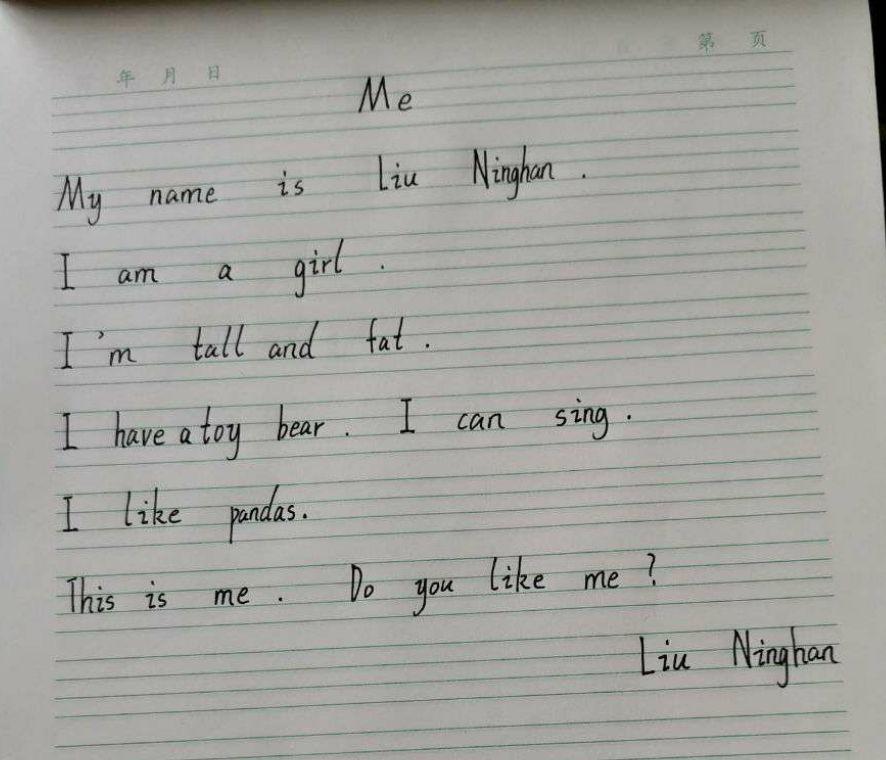 年 月 日 第 页
Me
My name is Liu Ninghan .
I am a girl .
I'm tall and fat .
I have a toy bear . I can sing .
I like pandas.
This is me . Do you like me ?
Liu Ninghan